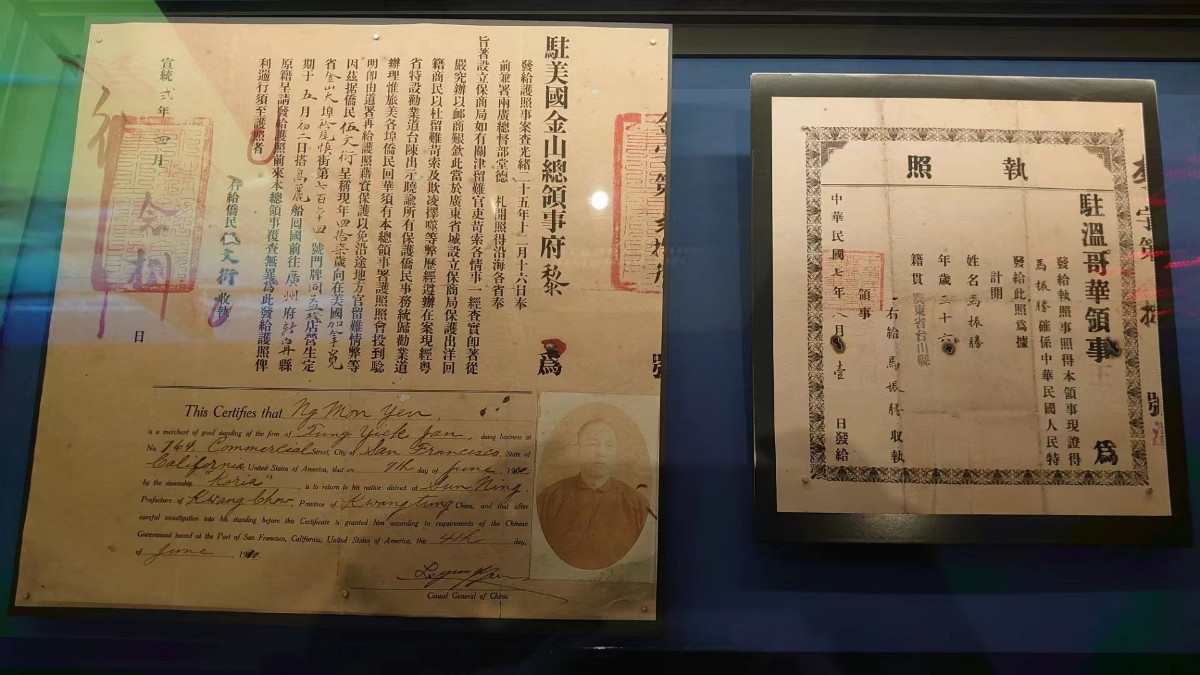 駐美國金山總領事府 黎 為
發給護照事案查光緒二十五年十一月十六日奉
前兼署兩廣總督部堂德 札開照得沿海各省奉
旨著設立保商局如有關津留難官吏苛索各情事一經查實即著從
嚴究辦以卹商艱欽此當於廣東省城設立保商局保護出洋回
籍商民以杜留難苛索及欺凌擇噬等弊歷經遵辦在案現經粵
省特設勸業道台陳出示曉諭所有保護僑民事務統歸勸業道
辦理惟旅美各埠僑民回華須有本總領事署護照照會投到驗
明即由道署再給護照藉資保護以免沿途地方官留難情弊等
因茲据僑民伍文衍呈稱現年四拾柒歲向在美國
省金山大埠 街第七百六十四號門牌同益 店營生定
期于五月初二日搭高麗船回國前往廣州府新寧縣
原籍呈請發給護照前來本總領事覆查無異為此發給護照俾
利遄行須至護照者
右給僑民伍文衍收執
宣統 年四月 日
This Certifies that Ng Mon Yen
is a merchant of good standing of the firm of Tung Yick Jan, doing business at
No. 764 Commercial Street, City of San Francisco, State of
California, United States of America, that on 7th day of June, 1910
by the steamship "Koria" is to return to his native district of Sun Ning,
Prefecture of Kwang Chow, Province of Kwangtung China, and that after
careful investigation into his standing before this Certificate is granted him according to requirements of the Chinese
Government issued at the Port of San Francisco, California, United States of America, this 4th day,
of June, 1910.
Consul General of China
執照
駐溫哥華領事 為
發給執照事照得本領事現證得
馬振勝確係中華民國人民特
發給此照為據
計開
姓名馬振勝
年歲三十六
籍貫廣東省台山縣
右給馬振勝收執
領事
中華民國七年八月壹日發給
字第 號